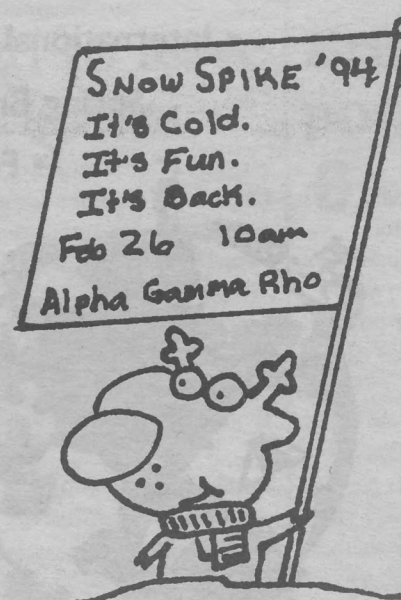 Snow Spike '94
It's Cold.
It's Fun.
It's Back.
Feb 26 10am
Alpha Gamma Rho